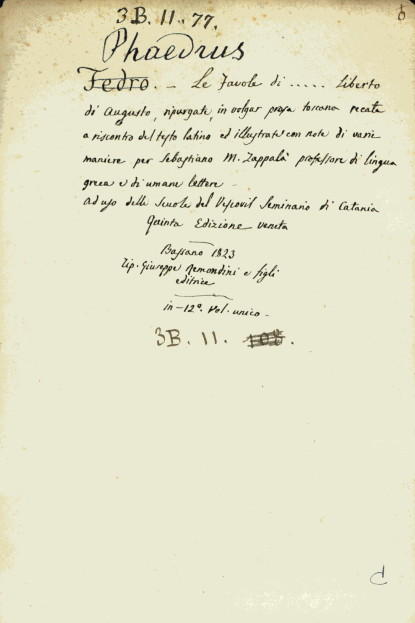 3B. 11. 77.
Phaedrus
Fedro. – Le Favole di ..... Liberto
di Augusto, ripurgate, in volgar prosa toscana recate
a riscontro del testo latino ed illustrate con note di varie
maniere per Sebastiano M. Zappalà professore di lingua
greca e di umane lettere –
ad uso delle Scuole del Vescovil Seminario di Catania
Quinta Edizione veneta
Bassano 1823
Tip. Giuseppe Remondini e figli
editrice
in–12°. Vol. unico –
3B. 11. 108.